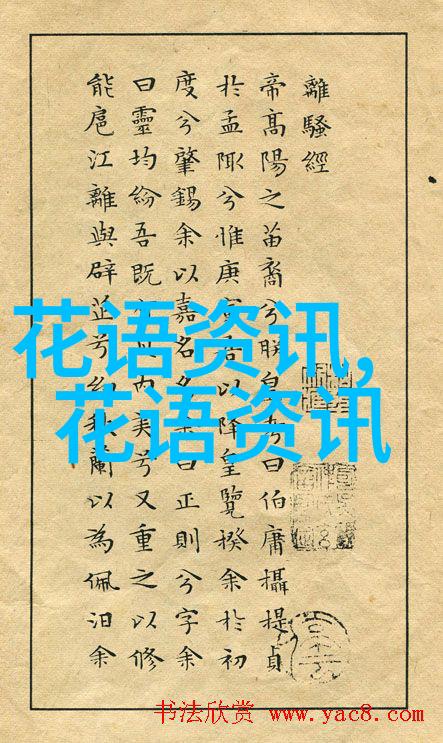 離騷經
帝高陽之苗裔兮朕皇考曰伯庸攝提貞
於孟陬兮惟庚寅吾以降皇覽揆余於初
度兮肇錫余以嘉名名余曰正則兮字余
曰靈均紛吾既內美兮又重之以修
能扈江離與辟芷兮紉秋蘭以為佩汨余
花语资讯,
花语资讯
书法欣赏 www.yac8.com